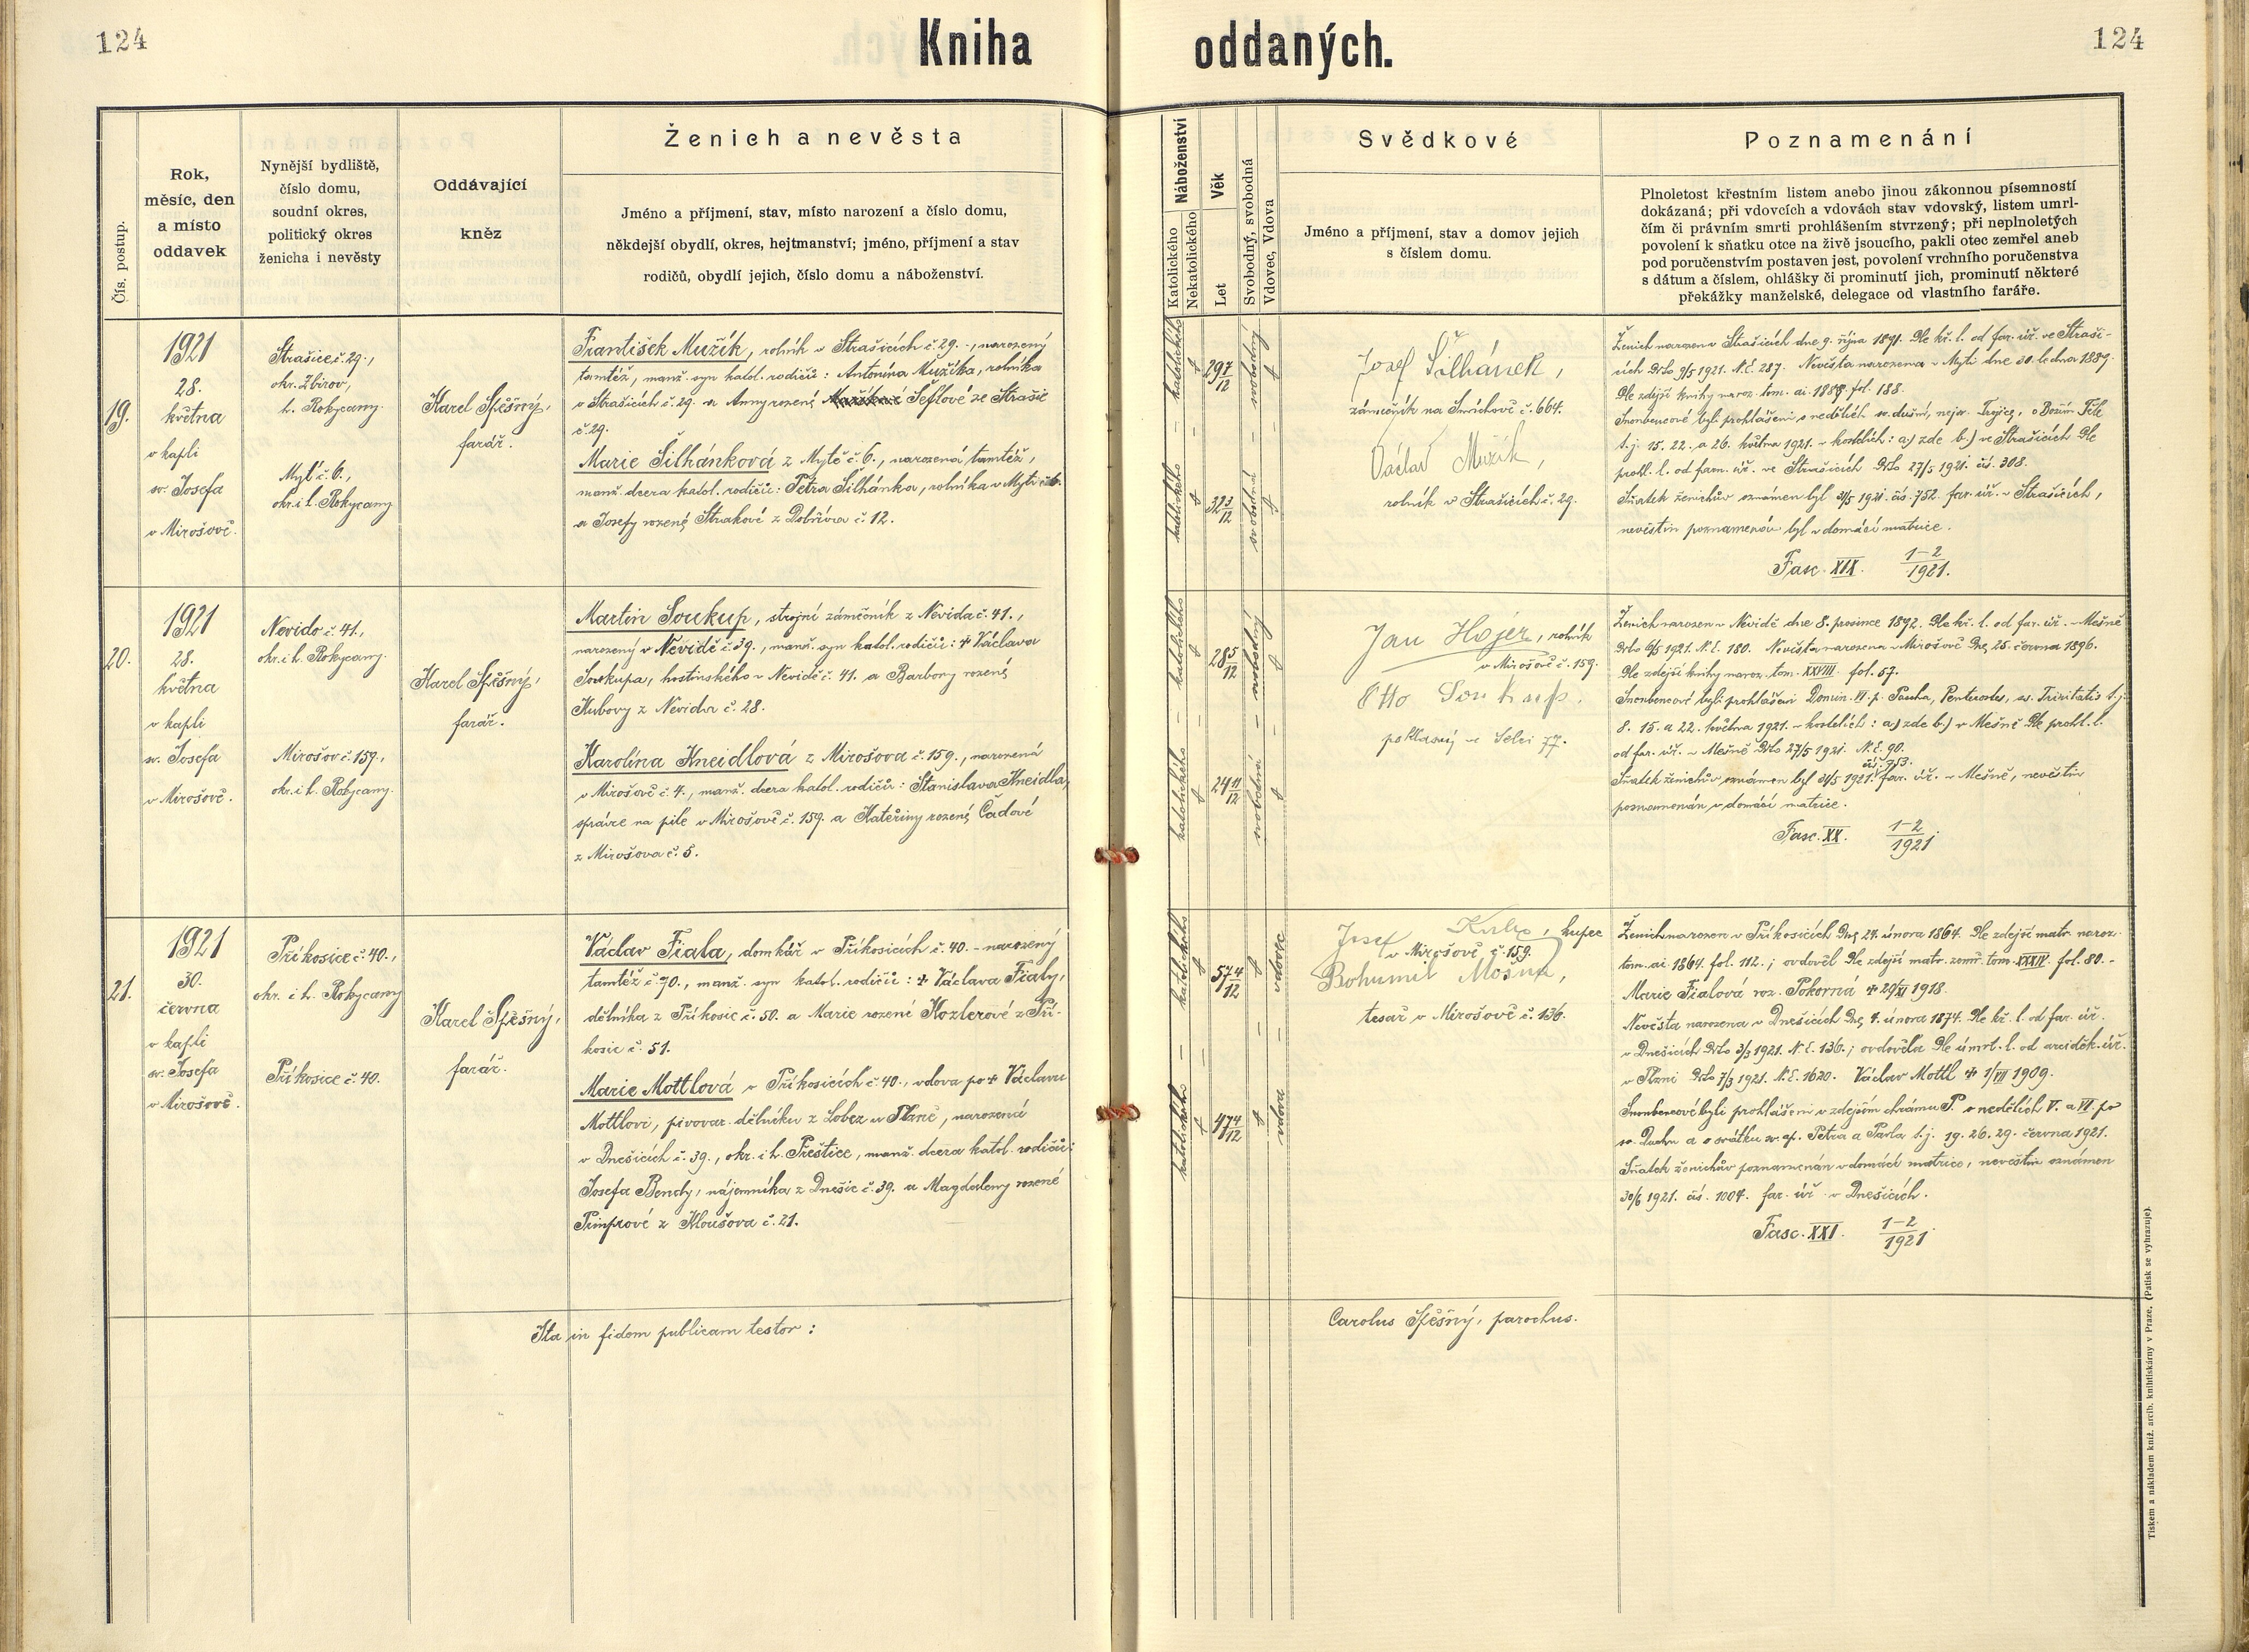 124
Kniha oddaných.
124
Čís. postup.
Rok,
měsíc, den
a místo
oddavek
Nynější bydliště,
číslo domu,
soudní okres,
politický okres
ženicha i nevěsty
Oddávající
kněz
Ženich a nevěsta
Jméno a příjmení, stav, místo narození a číslo domu,
někdejší obydlí, okres, hejtmanství; jméno, příjmení a stav
rodičů, obydlí jejich, číslo domu a náboženství.
Náboženství
Katolického
Nekatolického
Věk
Let
Svobodný, svobodná
Vdovec, Vdova
Svědkové
Jméno a příjmení, stav a domov jejich
s číslem domu.
Poznamenání
Plnoletost křestním listem anebo jinou zákonnou písemností
dokázaná; při vdovcích a vdovách stav vdovský, listem umrl-
čím či právním smrti prohlášením stvrzený; při neplnoletých
povolení k sňatku otce na živě jsoucího, pakli otec zemřel aneb
pod poručenstvím postaven jest, povolení vrchního poručenstva
s dátum a číslem, ohlášky či prominutí jich, prominutí některé
překážky manželské, delegace od vlastního faráře.
19.
1921
28.
května
v kapli
sv. Josefa
v Mirošově.
Strašice č. 29.,
okr. Zbirov,
h. Rokycany.
Mýť č. 6.,
okr. i h. Rokycany
Karel Spěšný,
farář.
František Mužík, rolník v Strašicích č. 29. -, narozený
tamtéž, manž. syn katol. rodičů: Antonína Mužíka, rolníka
v Strašicích č. 29. a Anny rozené Šeflové ze Strašic
č. 29.
Marie Šilhánková z Mýtě č. 6., narozená tamtéž,
manž. dcera katol. rodičů: Petra Šilhánka, rolníka v Mýti č. 6.
a Josefy rozené Strakové z Dobříva č. 12.
katolického
katolického
29 7/12
32 3/12
svobodný
svobodná
Josef Šilhánek,
zámečník na Smíchově č. 664.
Václav Mužík,
rolník v Strašicích č. 29.
Ženich narozen v Strašicích dne 9. října 1891. Dle kř. l. od far. úř. ve Straši-
cích Dto 9/5 1921. N. E. 287. Nevěsta narozena v Mýti dne 30. ledna 1889.
Dle zdejší knihy naroz. tom. ai. 1889 fol. 188.
Snoubencové byli prohlášeni o nedělích sv. dušní, nejsv. Trojice, o Božím Těle
t. j. 15. 22. a 26. května 1921. v kostelích: a.) zde b.) ve Strašicích Dle
prohl. l. od farn. úř. ve Strašicích Dto 27/5 1921. čís. 308.
Sňatek ženichův oznámen byl 31/5 1921. čís. 752. far. úř. v Strašicích,
nevěstin poznamenán byl v domácí matrice.
Fasc. XIX. 1-2/1921.
20.
1921
28.
května
v kapli
sv. Josefa
v Mirošově.
Nevido č. 41.,
okr. i h. Rokycany.
Mirošov č. 159.,
okr. i h. Rokycany.
Karel Spěšný,
farář.
Martin Soukup, strojní zámečník z Nevida č. 41.,
narozený v Nevidě č. 39., manž. syn katol. rodičů: + Václava
Soukupa, hostinského v Nevidě č. 41. a Barbory rozené
Kubovy z Nevida č. 28.
Karolína Kneidlová z Mirošova č. 159., narozená
v Mirošově č. 4., manž. dcera katol. rodičů: Stanislava Kneidla,
správce na pile v Mirošově č. 159. a Kateřiny rozené Cadové
z Mirošova č. 5.
katolického
katolického
28 5/12
24 11/12
svobodný
svobodná
Jan Hojer, rolník
v Mirošově č. 159.
Otto Soukup.
Ženich narozen v Nividě dne 8. prosince 1892. Dle kř. l. od far. úř. v Mešně
Dto 6/5 1921. N. E. 180. Nevěsta narozena v Mirošově Dne 25. června 1896.
Dle zdejší knihy naroz. tom. XXVIII. fol. 57.
Snoubencové byli prohlášeni Domin. VI. p. Pascha, Pentecostes, ss. Trinitatis t. j.
8. 15. a 22. května 1921. v kostelích: a.) zde b.) v Mešně Dle prohl. l.
od far. úř. v Mešně Dto 27/5 1921. N. E. 90.
čís. 753.
Sňatek ženichův oznámen byl 31/5 1921. far. úř. v Mešně, nevěstin
poznamenán v domácí matrice.
Fasc. XX. 1-2/1921.
21.
1921
30.
června
v kapli
sv. Josefa
v Mirošově.
Příkosice č. 40.,
okr. i h. Rokycany
Příkosice č. 40.
Karel Spěšný,
farář.
Václav Fiala, domkář v Příkosicích č. 40. - narozený
tamtéž č. 70., manž. syn katol. rodičů: + Václava Fialy,
dělníka z Příkosic č. 50. a Marie rozené Kozlerové z Pří-
kosic č. 51.
Marie Mottlová v Příkosicích č. 40., vdova po + Václavu
Mottlovi, pivovar. dělníku z Lobez u Plzně, narozená
v Dnešicích č. 39., okr. i h. Přeštice, manž. dcera katol. rodičů:
Josefa Bendy, nájemníka z Dnešic č. 39. a Magdaleny rozené
Pimprové z Kloušova č. 21.
katolického
katolického
57 4/12
47 4/12
vdovec
vdova
Josef, kupec
v Mirošově, č. 159.
Bohumil Mosna,
tesař v Mirošově č. 136.
Ženich narozen v Příkosicích Dne 24. února 1864. Dle zdejší matr. naroz.
tom. ai. 1864. fol. 112.; ovdověl Dle zdejší matr. zemř. tom. XXXIV. fol. 80. -
Marie Fialová roz. Pokorná + 29/XI 1918.
Nevěsta narozena v Dnešicích Dne 4. února 1874. Dle kř. l. od far. úř.
v Dnešicích Dto 3/3 1921. N. E. 136.; ovdověla Dle úmrt. l. od arciděk. úř.
v Plzni Dto 7/3 1921. N. E. 1620. Václav Mottl + 1/VII 1909.
Snoubencové byli prohlášeni v zdejším chrámu P. o nedělích V. a VI. po
sv. Duchu a o svátku sv. ap. Petra a Pavla t. j. 19. 26. 29. června 1921.
Sňatek ženichův poznamenán v domácí matrice, nevěstin oznámen
30/6 1921. čís. 1004. far. úř. v Dnešicích.
Fasc. XXI. 1-2/1921.
Ita in fidem publicam testor:
Carolus Spěšný, parochus.
Tiskem a nákladem kníž. arcib. knihtiskárny v Praze. (Patisk se vyhrazuje).